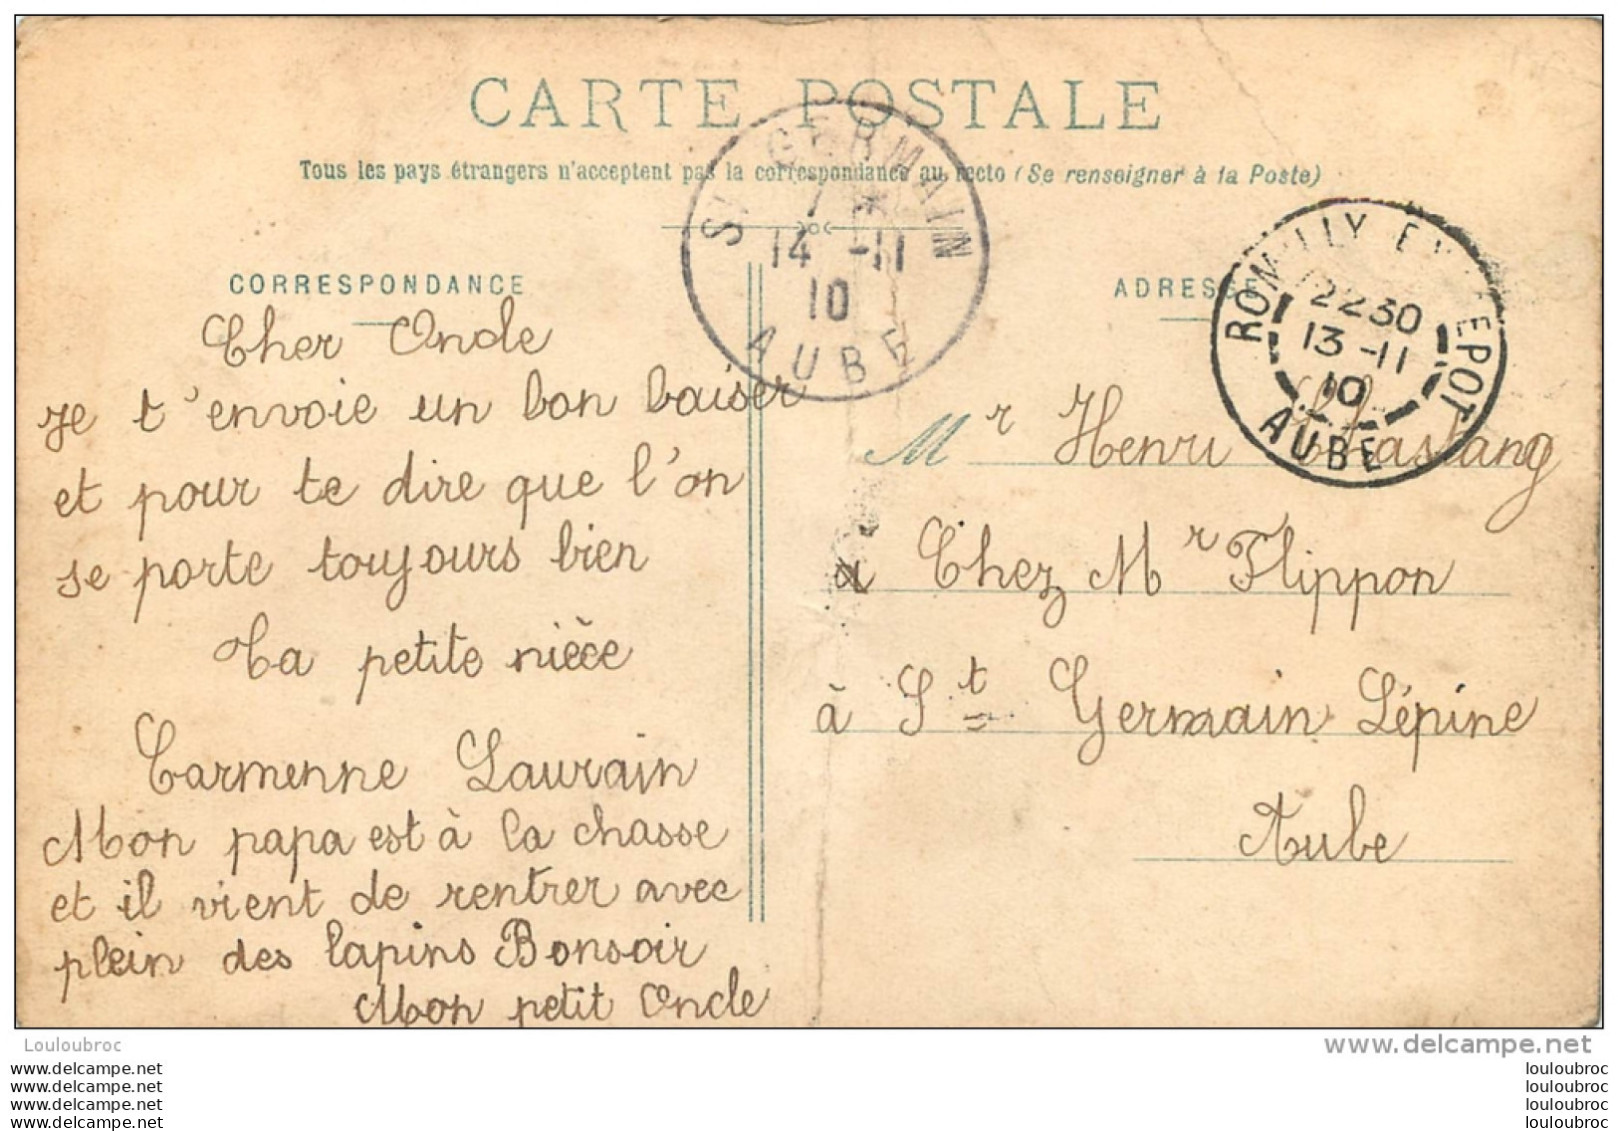 CARTE POSTALE
Tous les pays étrangers n'acceptent pas la correspondance au recto (Se renseigner à la Poste)
CORRESPONDANCE
Cher Oncle
Je t'envoie un bon baiser
et pour te dire que l'on
se porte toujours bien
Ta petite nièce
Carmenne Laurain
Mon papa est à la chasse
et il vient de rentrer avec
plein des lapins Bonsoir
Mon petit Oncle
ST GERMAIN
7
14 -11
10
AUBE
ROMILLY EN
EPOT
2230
13 -11
10
AUBE
ADRESSE
Mr Henri Chastang
Chez Mr Flippon
à St Germain Lépine
Aube
www.delcampe.net
Louloubroc
www.delcampe.net
www.delcampe.net
www.delcampe.net
www.delcampe.net
louloubroc
louloubroc
louloubroc
louloubroc